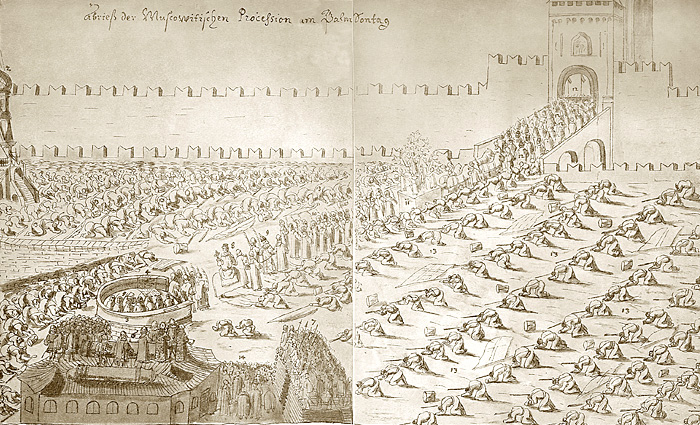 Abrieß der Muscowitischen Procession am PalmSontag
13
13
13
13